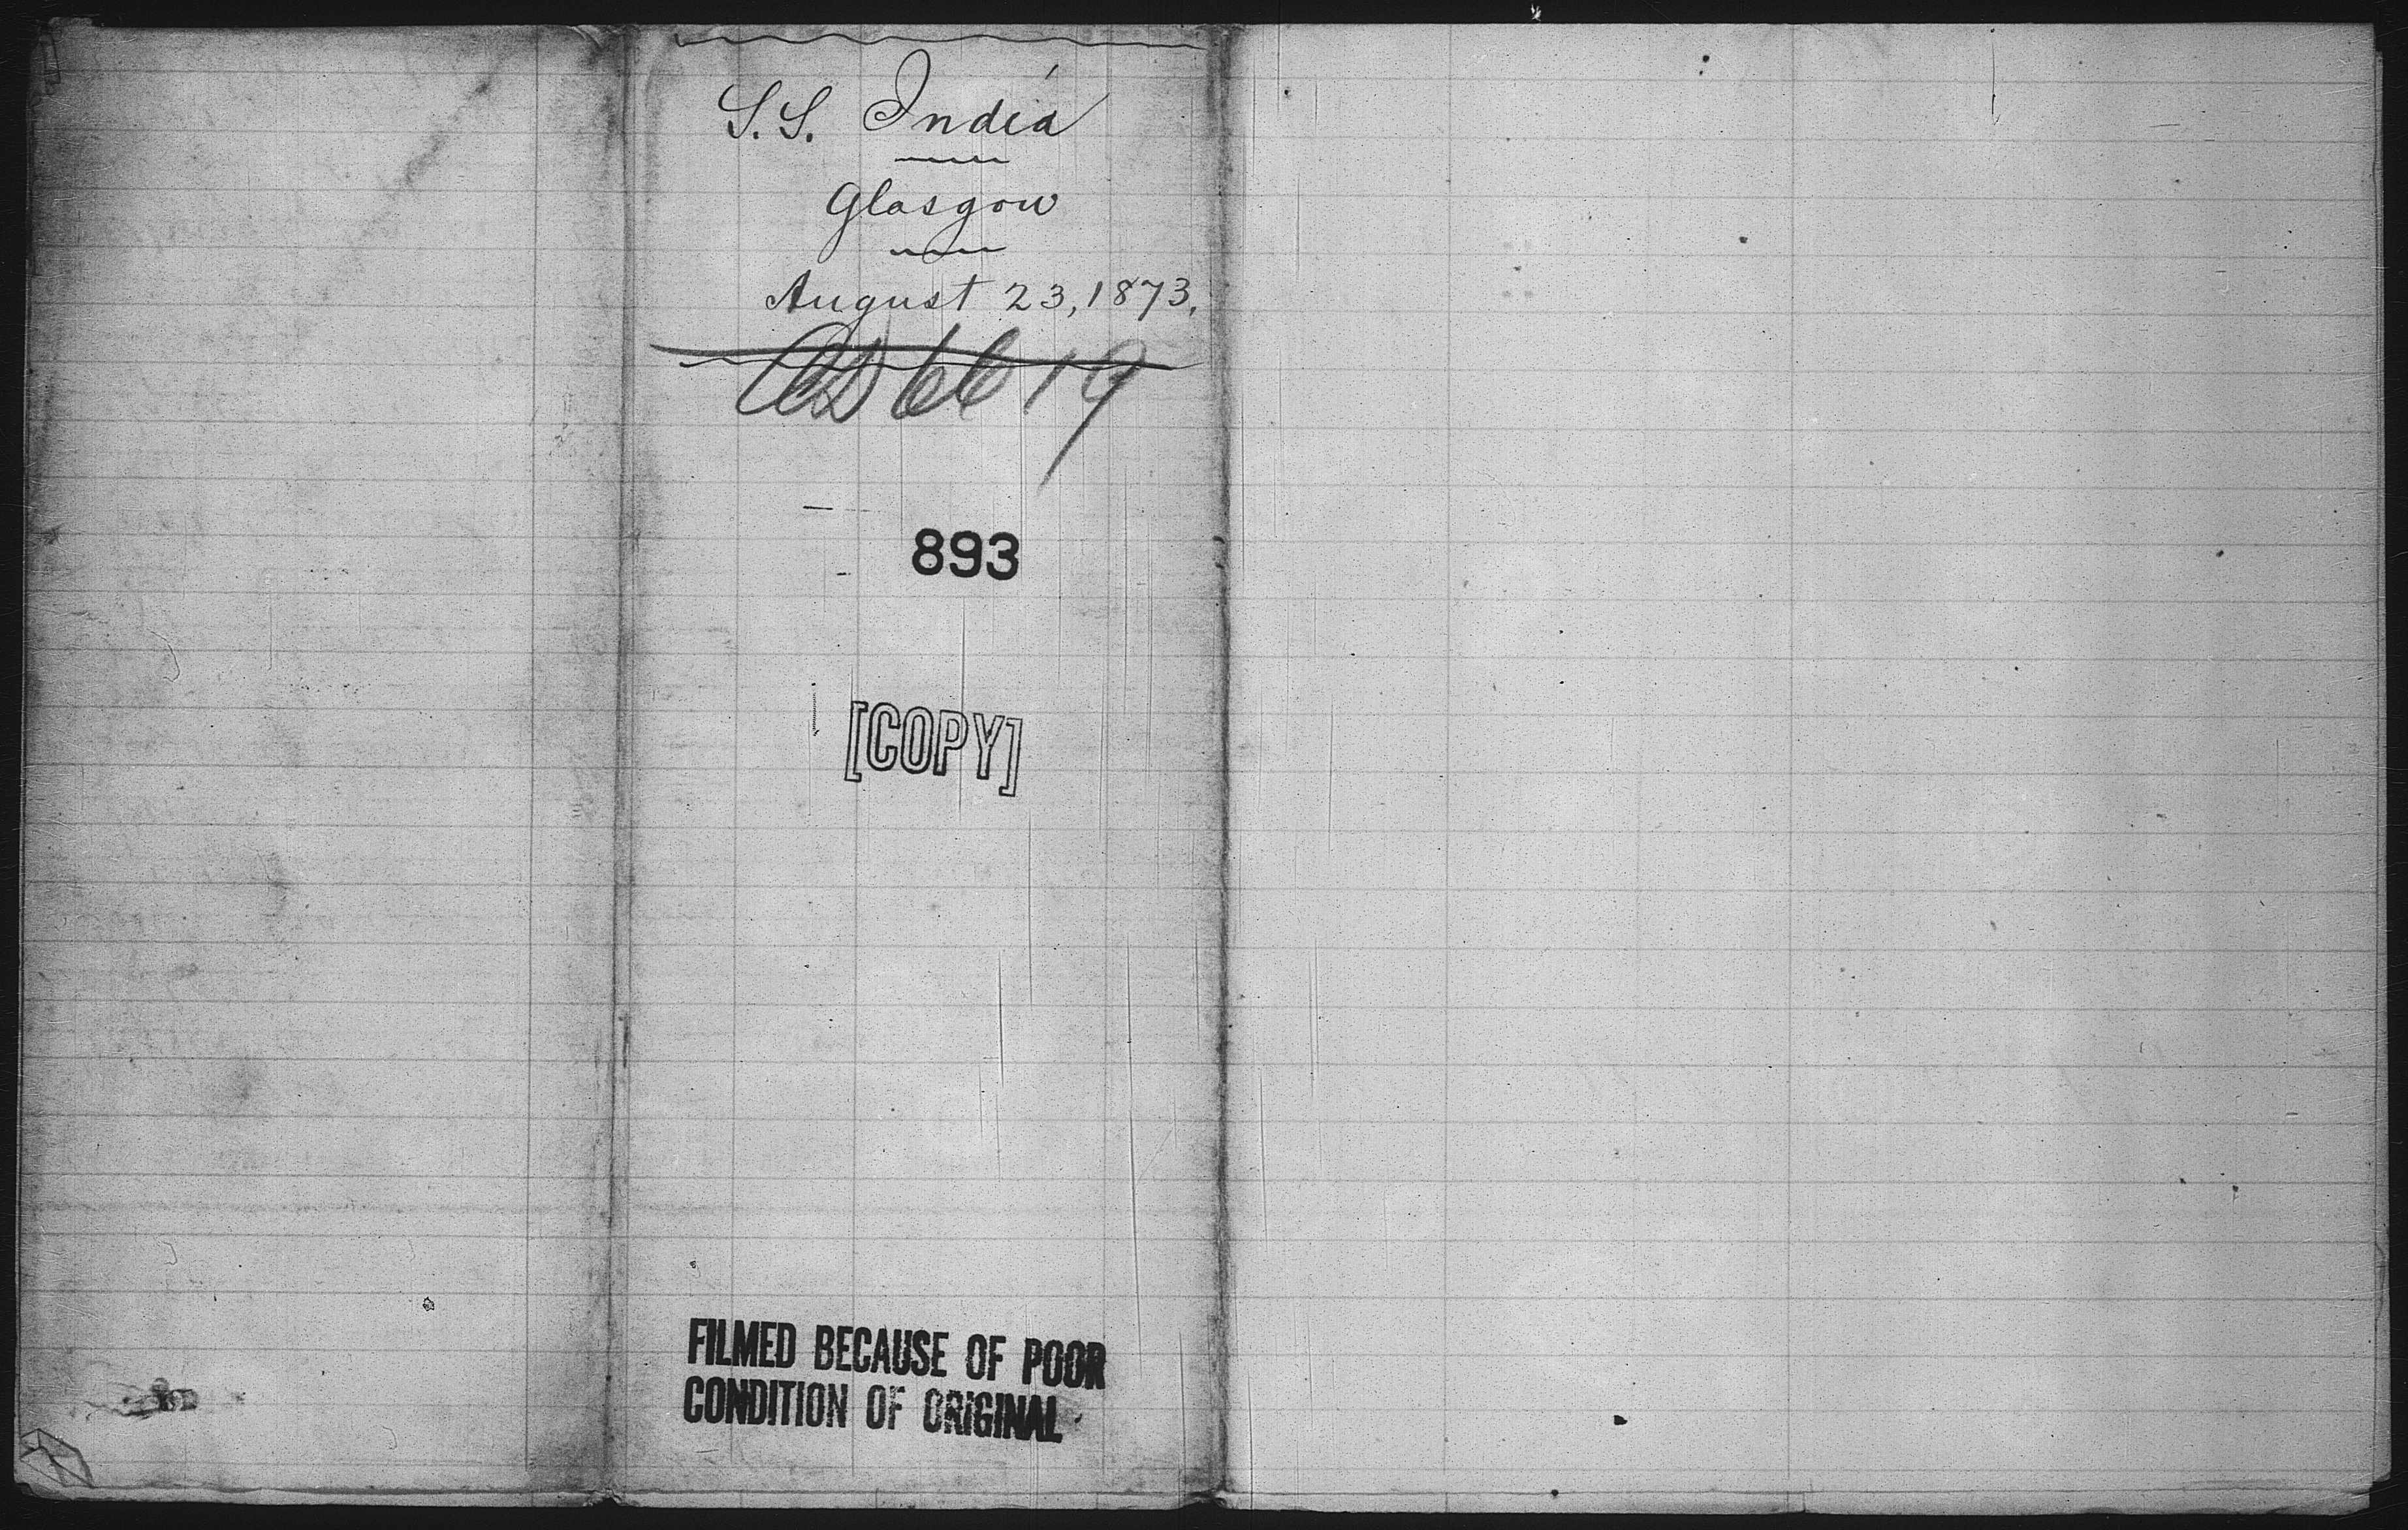 S.S. India
Glasgow
August 23, 1873.
6619
893
[COPY]
FILMED BECAUSE OF POOR
CONDITION OF ORIGINAL